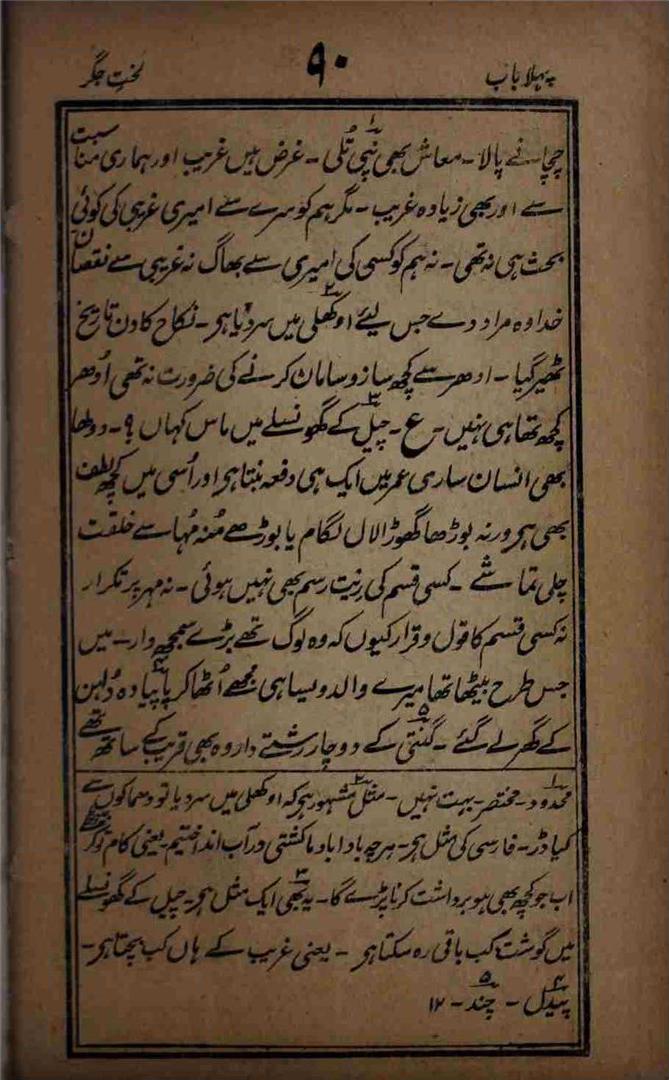 پہلا باب ۹۰ لخت جگر
چچا نے پالا ۔ معاش بھی نپی تُلی ۱ ۔ غرض ہیں غریب اور ہماری مناسبت
سے اور بھی زیادہ غریب ۔ مگر ہم کو سرے سے امیری غریبی کی کوئی
بحث ہی نہ تھی ۔ نہ ہم کو کسی کی امیری سے بھاگ نہ غریبی سے نقصان
خدا وہ مراد دے جس لیئے اوکھلی ۲ میں سر دیا ہی ۔ نکاح کا دن تاریخ
ٹھیر گیا ۔ ادھر سے کچھ ساز و سامان کرنے کی ضرورت نہ تھی اُودھر
کچھ تھا ہی نہیں ۔ ع ۔ چیل ۳ کے گھونسلے میں ماس کہاں ؟ ۔ دولھا
بھی انسان ساری عمر میں ایک ہی دفعہ بنتا ہی اور اُسی میں کچھ لطف
بھی ہی ورنہ بوڑھا گھوڑا لال لگام یا بوڑھے مُنہ مُہا سے خلقت
چلی تماشے ۔ کسی قسم کی رِیت رسم بھی نہیں ہوئی ۔ نہ مہر پر تکرار
نہ کسی قسم کا قول و قرار کیوں کہ وہ لوگ تھے بڑے سمجھ دار ۔ میں
جس طرح بیٹھا تھا میرے والد ویسا ہی مجھے اُٹھا کر پاپیادہ ۴ دُلہن
کے گھر لے گئے ۔ گنتی ۵ کے دو چار رشتے دار وہ بھی قریب کے ساتھ تھے
۱ محدود ۔ مختصر ۔ بہت نہیں ۔ ۲ مثل مشہور ہی کہ اوکھلی میں سر دیا تو دھماکوں سے
کیا ڈر ۔ فارسی کی مثل ہی ۔ ہرچہ بادا باد ما کشتی در آب انداختیم یعنی کام تو کر چکے
اب جو کچھ بھی ہو برداشت کرنا پڑے گا ۔ ۳ یہ بھی ایک مثل ہی ۔ چیل کے گھونسلے
میں گوشت کب باقی رہ سکتا ہی ۔ یعنی غریب کے ہاں کب بچتا ہی ۔
۴ پیدل ۔ ۵ چند ۔ ۱۲